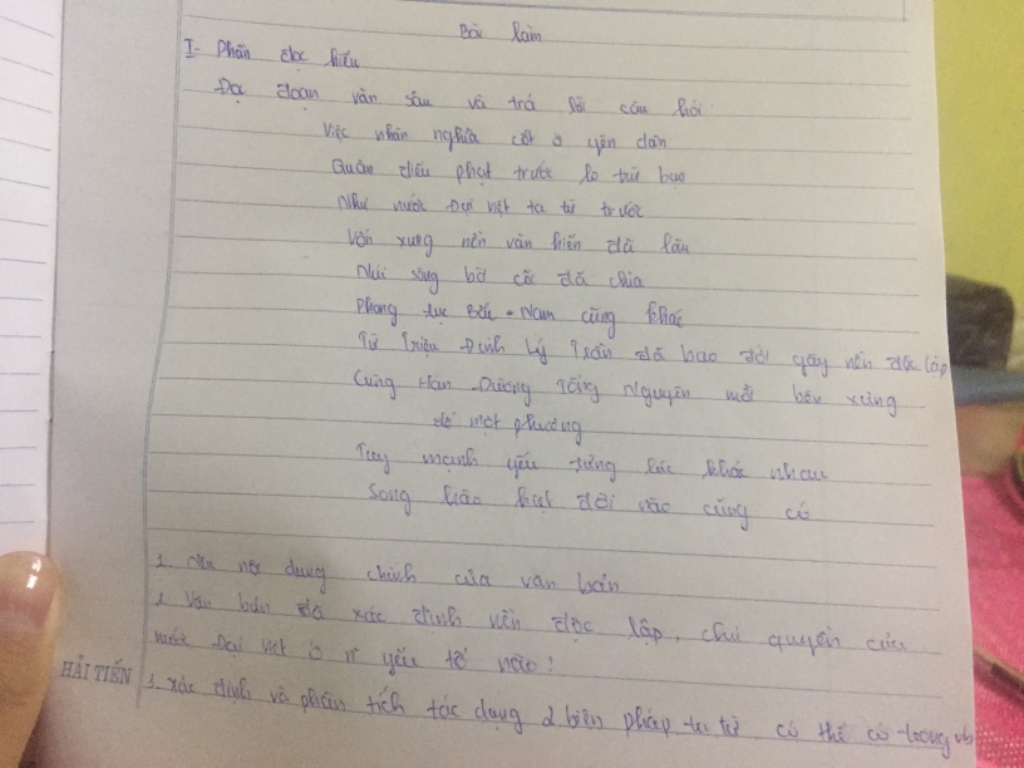 Bài làm
I- Phần đọc hiểu
Đọc đoạn văn sau và trả lời câu hỏi
Việc nhân nghĩa cốt ở yên dân
Quân điếu phạt trước lo trừ bạo
Như nước Đại Việt ta từ trước
Vốn xưng nền văn hiến đã lâu
Núi sông bờ cõi đã chia
Phong tục Bắc - Nam cũng khác
Từ Triệu Đinh Lý Trần đã bao đời gây nên độc lập
Cùng Hán Đường Tống Nguyên mỗi bên xưng
đế một phương
Tuy mạnh yếu từng lúc khác nhau
Song hào kiệt đời nào cũng có
1. Nêu nội dung chính của văn bản
2. Văn bản đã xác định nền độc lập, chủ quyền của
nước Đại Việt ở n yếu tố nào?
HẢI TIẾN
3. Xác định và phân tích tác dụng 2 biện pháp tu từ có thể có trong vb